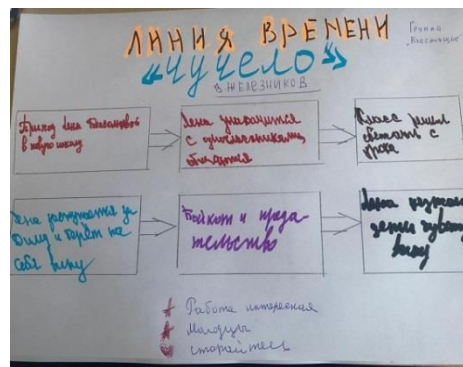 ЛИНИЯ ВРЕМЕНИ
Группа
"ЧУЧЕЛО"
В ЖЕЛЕЗНИКОВ
Приход Лены Бессольцевой
в новую школу
Лена знакомится
с одноклассниками,
Класс решил
сбежать с
урока
Лена заступается за
Диму и берёт на
себя вину
Бойкот и преда-
тельство
Лена
дети чувст
вину
Работа интересная
Молодцы
старайтесь